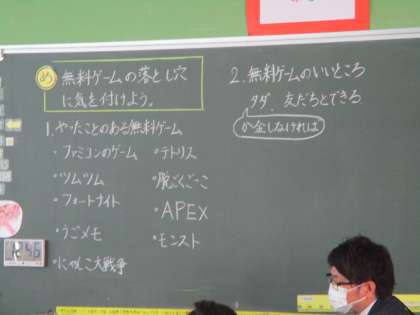 め 無料ゲームの落とし穴
に気を付けよう。
1.やったことのある無料ゲーム
・ファミコンのゲーム ・テトリス
・ツムツム ・脱ごくごっこ
・フォートナイト ・APEX
・うごメモ ・モンスト
・にゃんこ大戦争
2.無料ゲームのいいところ
タダ、友だちとできる
か金しなければ